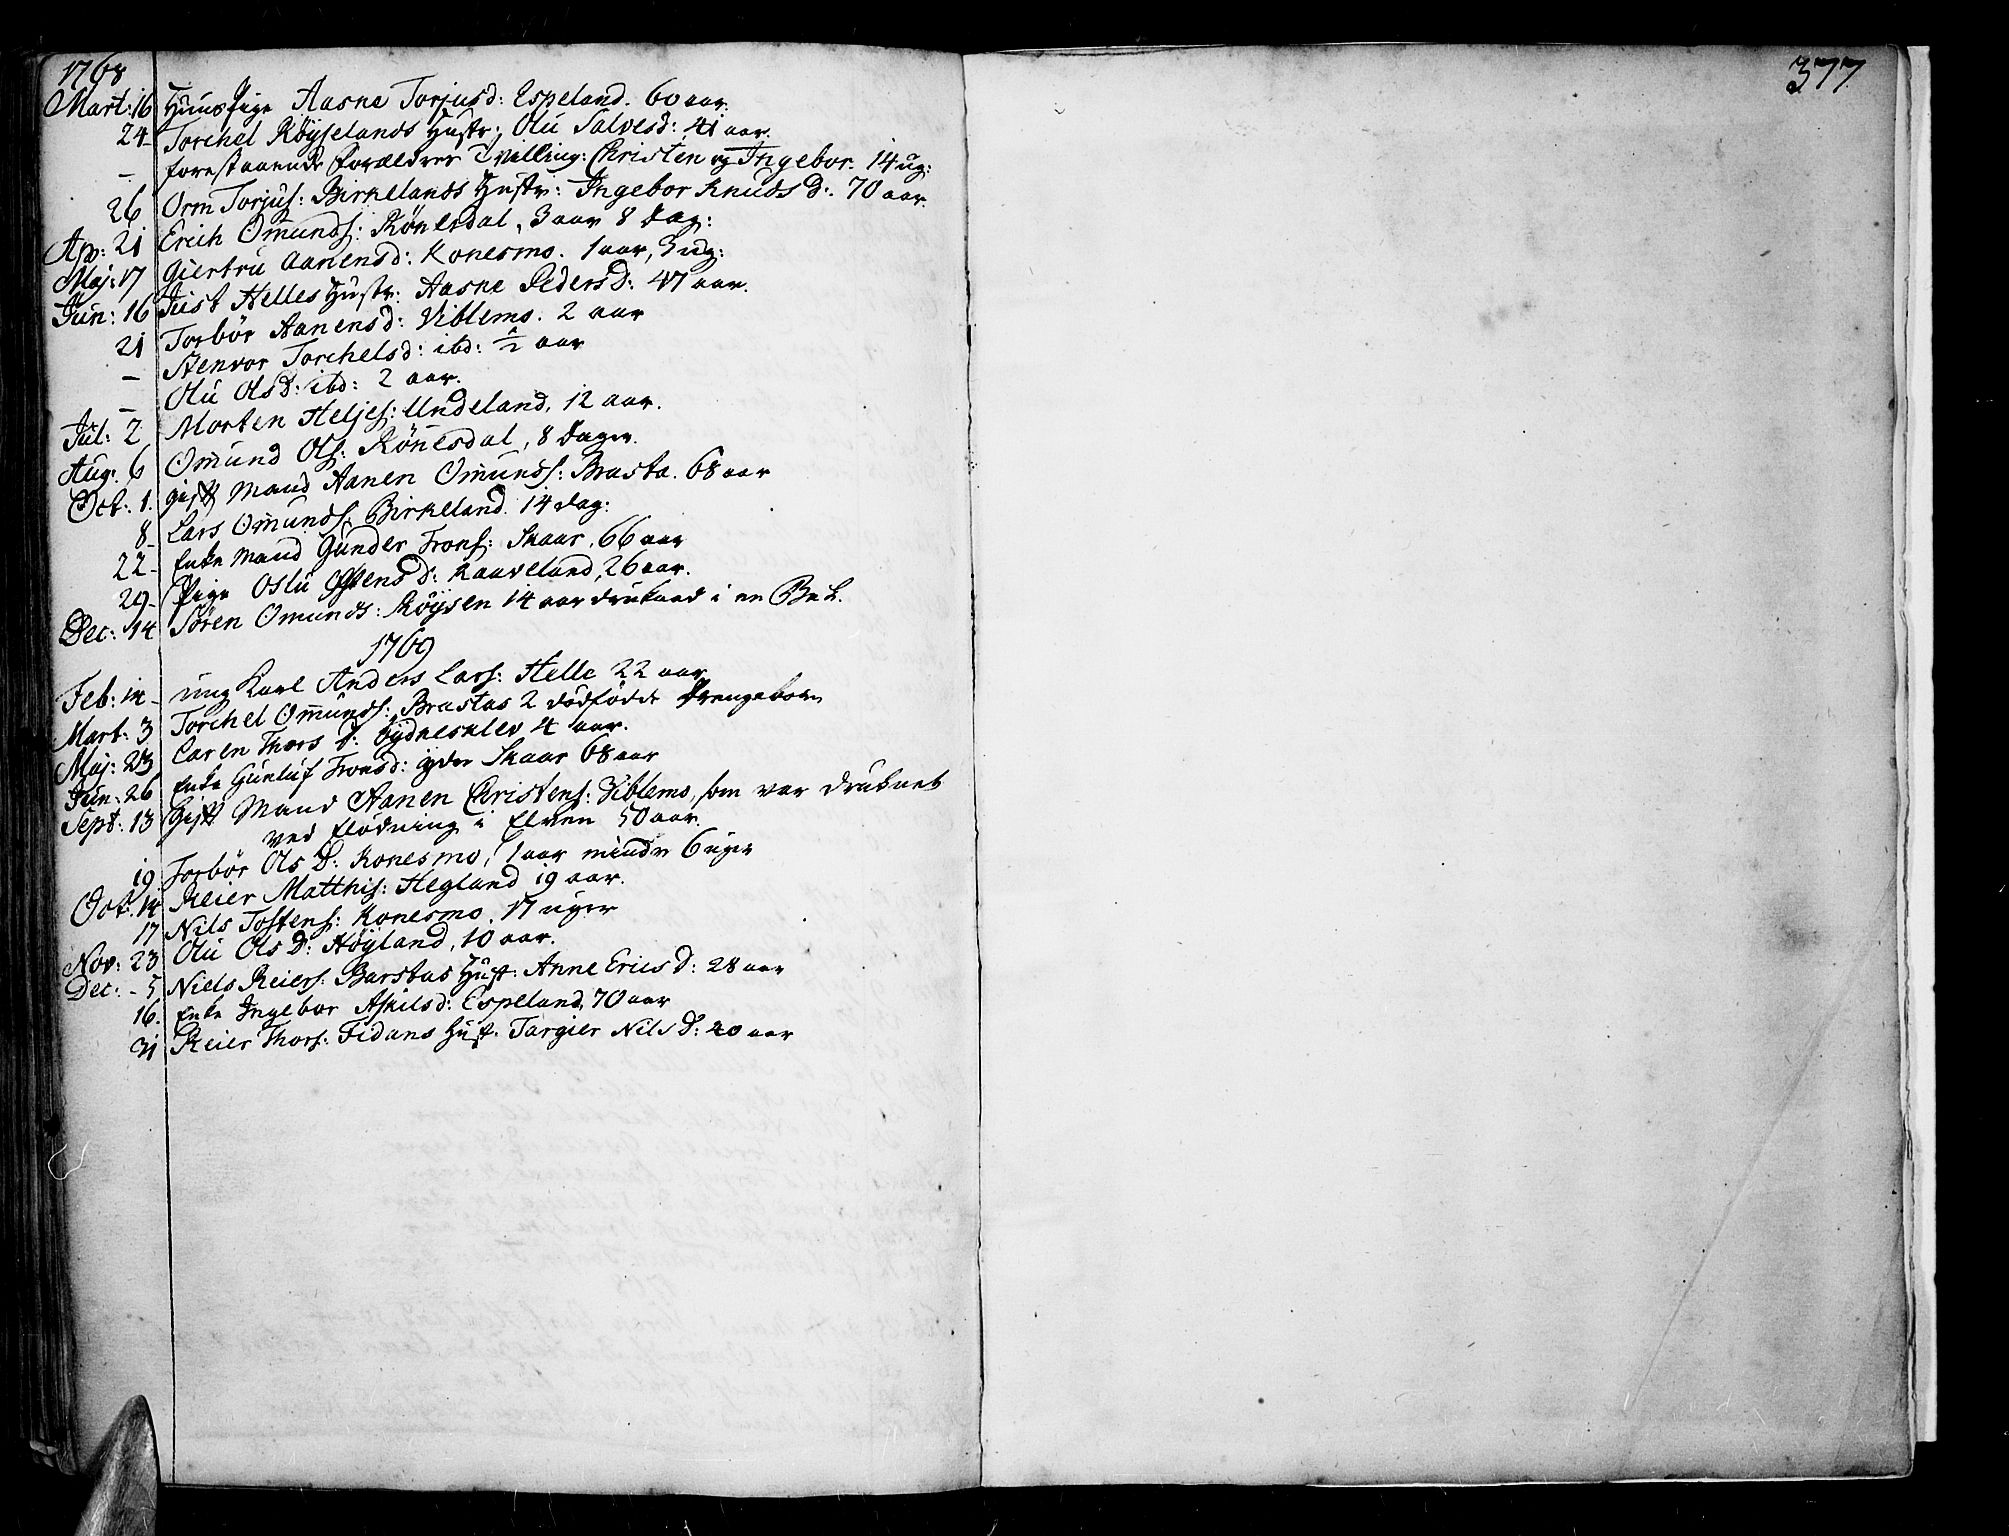 1768
Mart: 16 Huus Pige Aasne Torjusd: Espeland. 60 aar.
24- Torchel Röyselands Hustr: Olu Salvesd: 41 aar.
- forestaaende Forældres Tvilling: Christen og Ingebor. 14 ug:
26 Orm Torjus: Birkelands Hustr: Ingebor Knuds D:. 70 aar.
Apr: 21 Erich Omunds: Rönesdal, 3 aar 8 Dag:
Maj: 17 Giertru Aanensd: Konesmo. 1 aar, 3 ug:
Jun: 16 Just Helles Hustr: Aasne Peders D: 47 aar.
21 Torbör Aanensd: Viblemo. 2 aar
- Stenvor Torchelsd: ibd: ½ aar
- Olu Ols D: ibd: 2 aar.
Jul: 2 Morten Heljes: Undeland, 12 aar.
Aug: 6 Omund Ols: Rönesdal, 8 Dager.
Oct: 1. gift Mand Aanen Omunds: Brasta. 68 aar
8- Lars Omunds: Birkeland. 14 dag:
22- Enke Mand Gunder Trons: Skaar, 66 aar
29- Pige Oslu Ostens D: Kaaveland, 26 aar.
Dec: 14 Sören Omunds: Röysen 14 aar drukned i en Bek.
1769
Feb: 14- ung Karl Anders Lars: Helle 22 aar
Mart: 3 Torchel Omunds: Brastas 2 dödfödde Drengebörn
Maj: 23 Caren Thors D: Oydnesklev 4 aar.
Jun: 26 Enke Gunluf Tronsd: yder Skaar 68 aar
Sept: 13 Gift Mand Aanen Christens: Viblemo, som var druknet
ved flödning i Elven 50 aar.
19 Torbör Ols D: Konesmo, 1 aar mindr 6 uger
Oct: 14 Reier Matthis: Hegland 19 aar.
17 Nils Tostens: Konesmo. 17 uger
Nov: 23 Olu Ols D: Höyland, 10 aar.
Dec: - 5 Niels Reiers: Barstas Hust: Anne Erics D: 28 aar
16- Enke Ingebor Askilsd: Espeland, 70 aar
31 Reier Thors: Fidans Hust: Targier Nils D: 40 aar
377